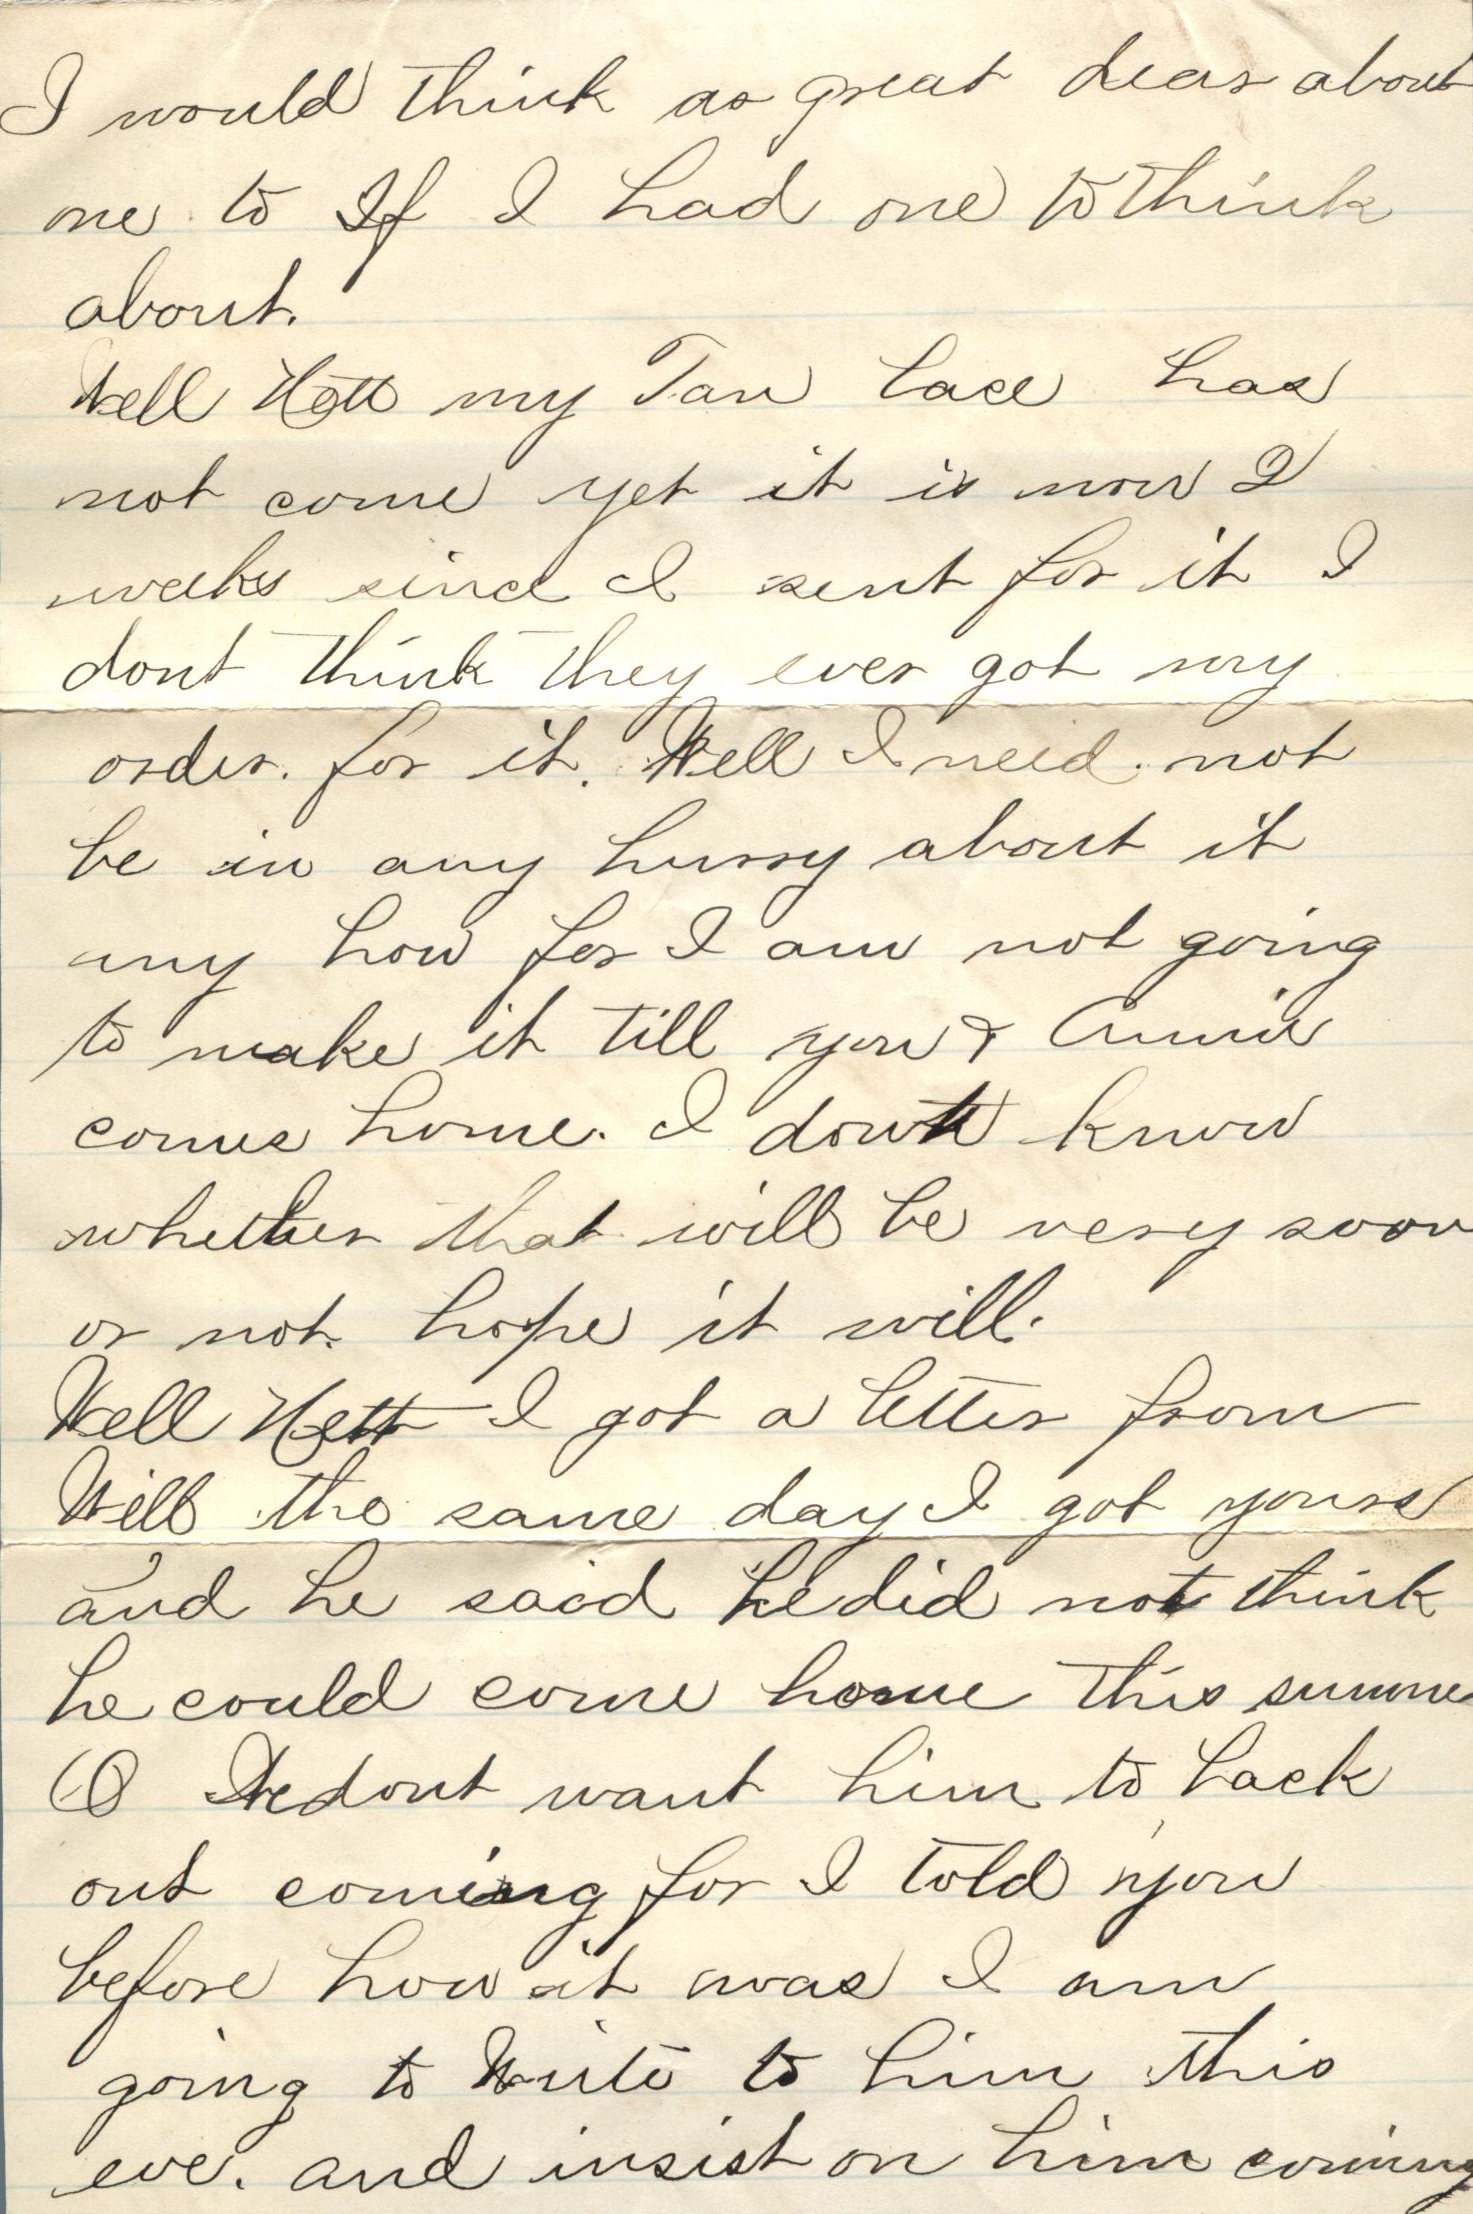 I would think as great deas about
one to If I had one to think
about.
Well Hett my Tan lace has
not come yet it is now 2
weeks since I sent for it I
dont think they ever got my
order. for it. Well I need not
be in any hurry about it
any how for I am not going
to make it till you & Annie
comes home. I dont know
whether that will be very soon
or not. hope it will.
Well Hett I got a letter from
Will the same day I got yours
and he said he did not think
he could come home this summe
O We dont want him to back
out coming for I told you
before how it was I am
going to Write to him this
eve. and insist on him coming